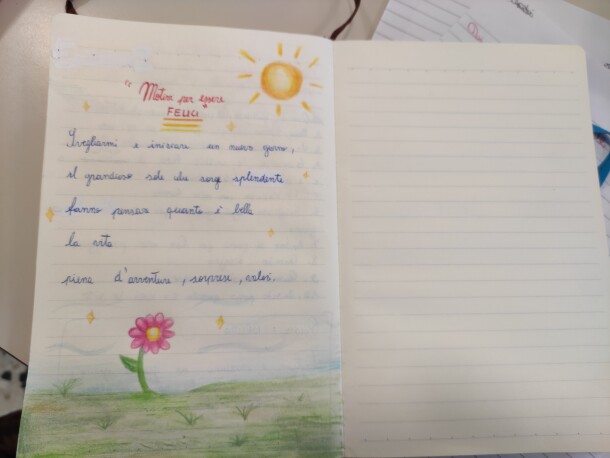 "Motivi per essere
FELICI"
Svegliarmi e iniziare un nuovo giorno,
il grandioso sole che sorge splendente
fanno pensare quanto è bella
la vita
piena d'avventure, sorprese, valori.